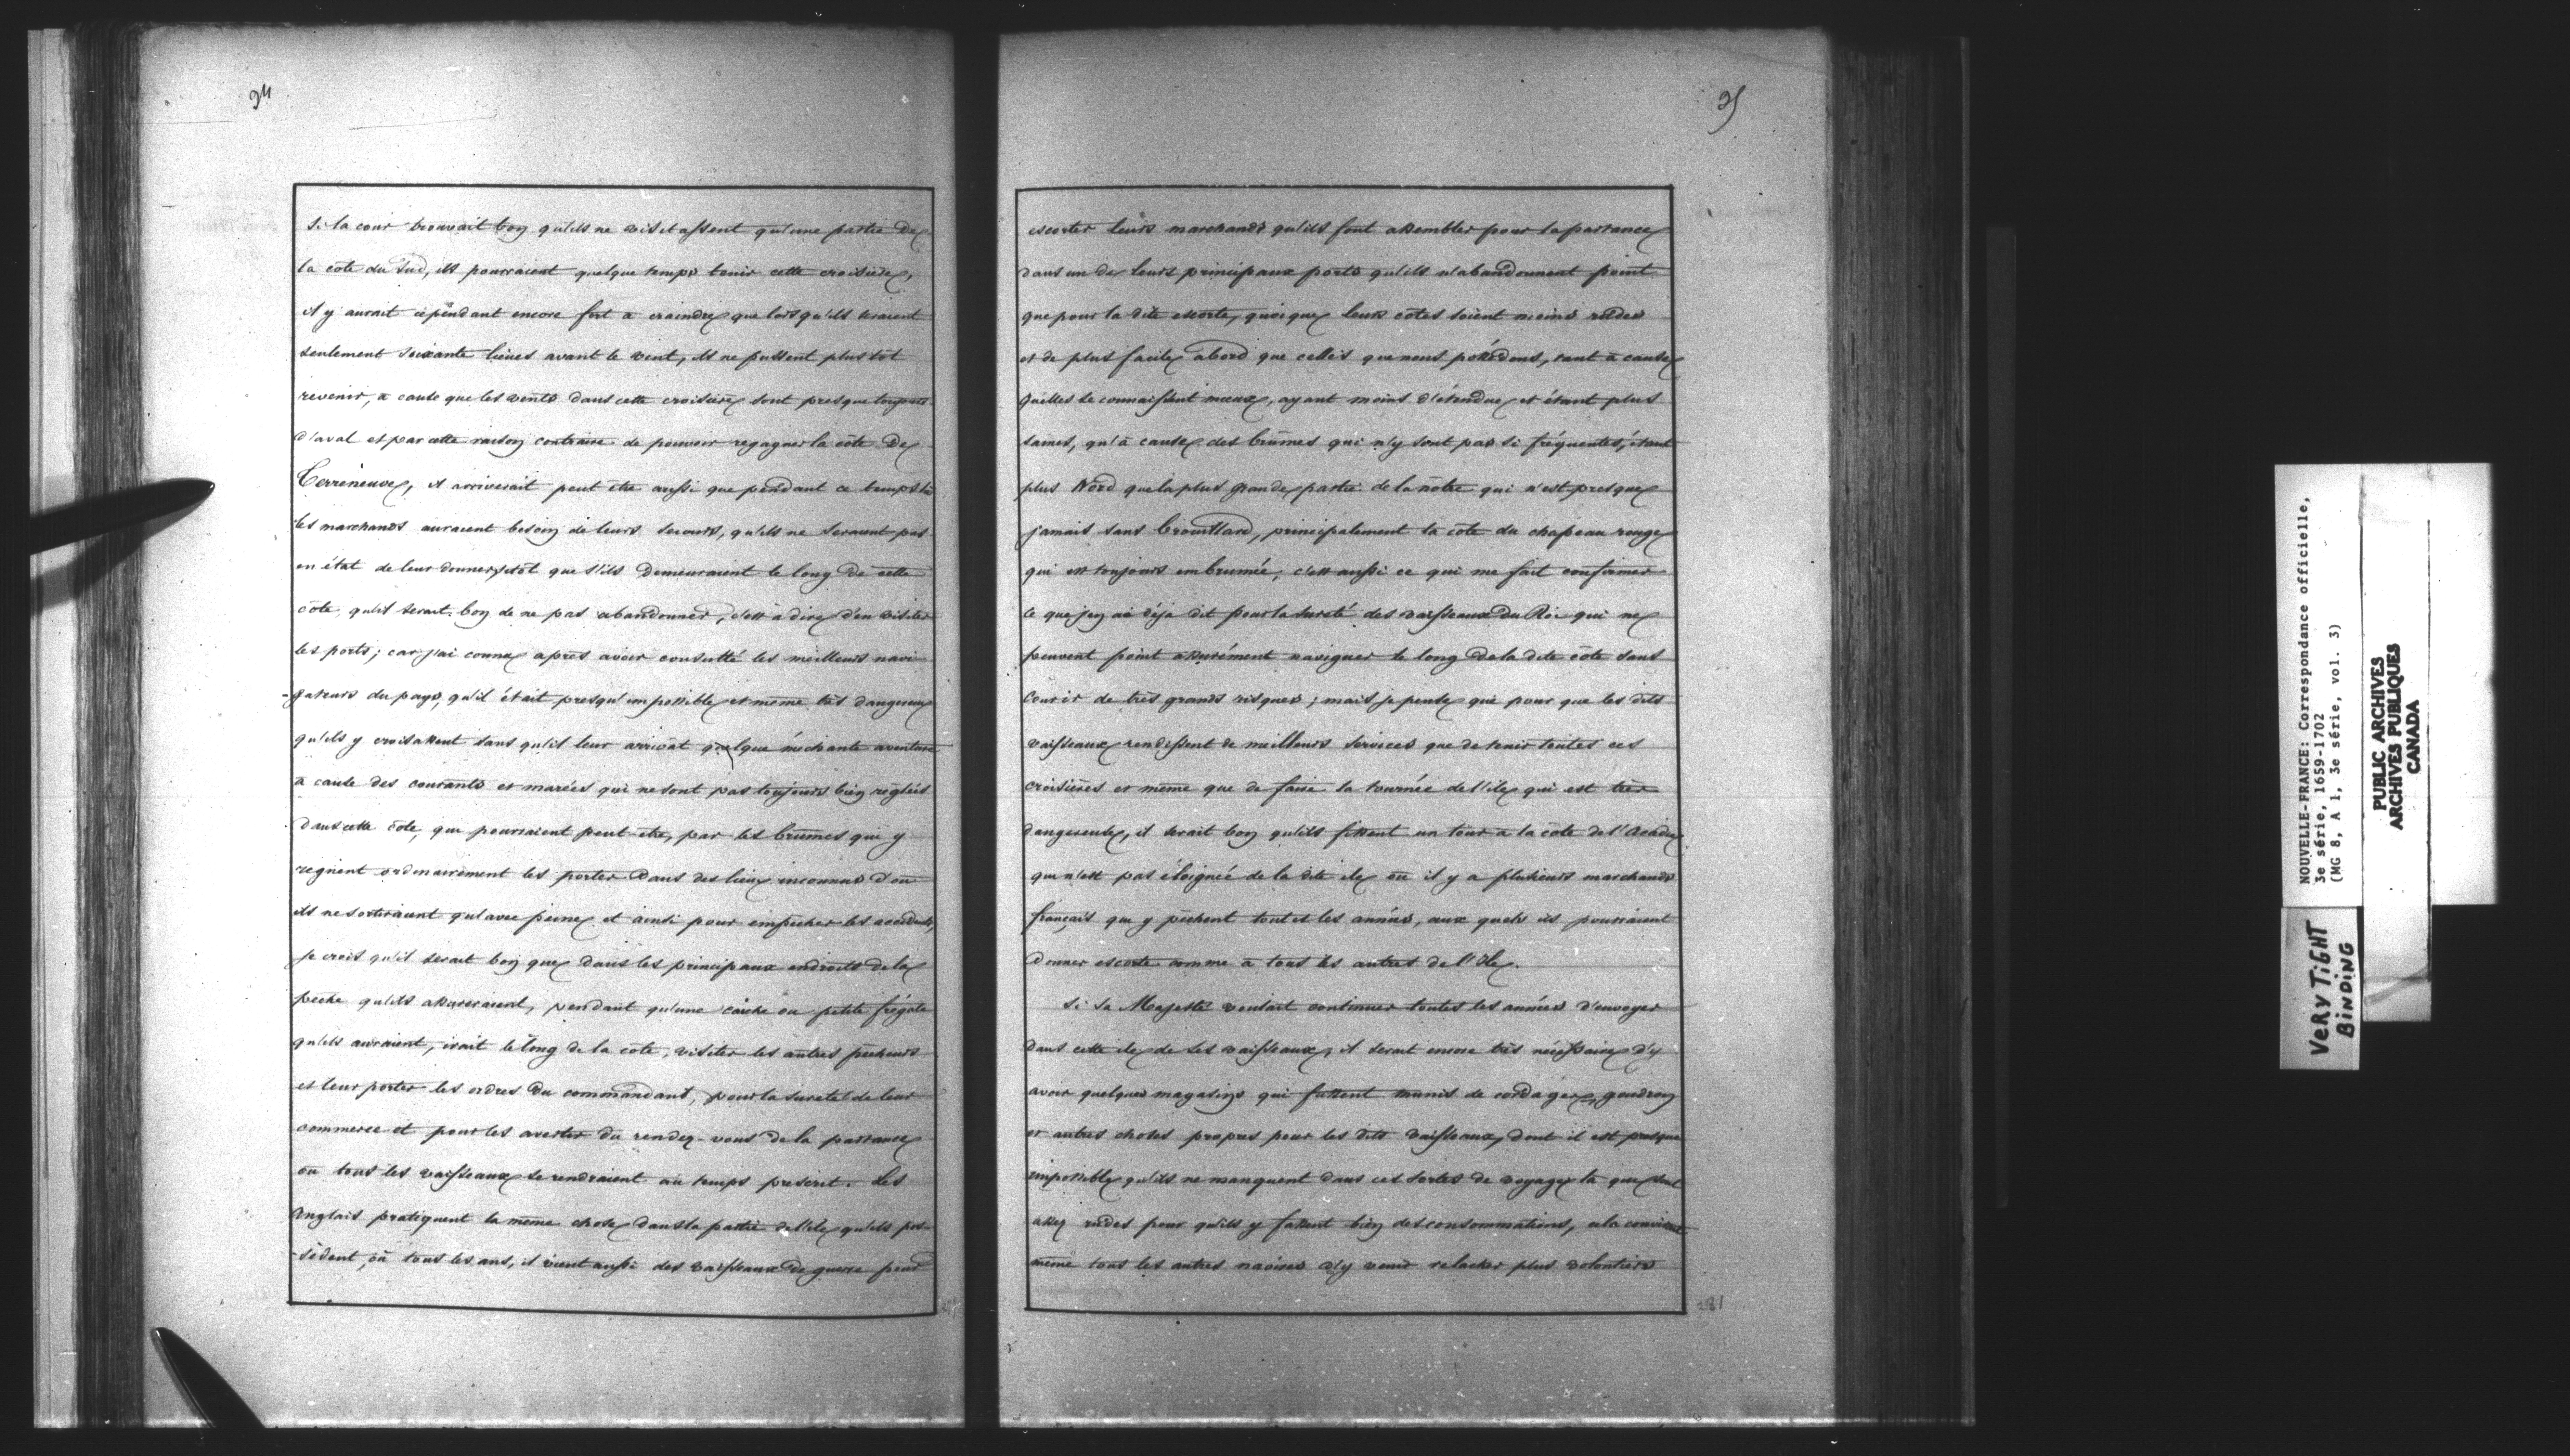 34
si la cour trouvait bon qu'ils ne visitassent qu'une partie de
la côte du Sud, ils pourraient quelque temps tenir cette croisière,
il y aurait cependant encore fort à craindre que lorsqu'ils seraient
seulement soixante lieues avant le vent, ils ne pussent plus tôt
revenir, à cause que les vents dans cette croisière sont presque toujours
d'aval et par cette raison contraire de pouvoir regagner la côte de
Terreneuve, il arriverait peut être aussi que pendant ce temps
les marchands auraient besoin de leurs secours, qu'ils ne seraient pas
en état de leur donner sitôt que s'ils demeuraient le long de cette
côte, qu'il serait bon de ne pas abandonner, c'est à dire d'en visiter
les ports; car j'ai connu après avoir consulté les meilleurs navi-
-gateurs du pays, qu'il était presqu'impossible et même très dangereux
qu'ils y croisassent sans qu'il leur arrivât quelque méchante aventure
à cause des courants et marées qui ne sont pas toujours bien réglées
dans cette côte, qui pourraient peut-être, par les brumes qui y
règnent ordinairement les porter dans des lieux inconnus d'où
ils ne sortiraient qu'avec peine et ainsi pour empêcher les accidents,
je crois qu'il serait bon que dans les principaux endroits de la
pêche qu'ils assureraient, pendant qu'une caiche ou petite frégate
qu'ils auraient, irait le long de la côte, visiter les autres pêcheurs
et leur porter les ordres du commandant, pour la sureté de leur
commerce et pour les avertir du rendez-vous de la partance
où tous les vaisseaux se rendraient au temps prescrit. Les
anglais pratiquent la même chose dans la partie de l'île qu'ils pos-
-sèdent, où tous les ans, il vient aussi des vaisseaux de guerre pour
35
escorter leurs marchands qu'ils font assembler pour la partance
dans un de leurs principaux ports qu'ils n'abandonnent point
que pour la dite escorte, quoique leurs côtes soient moins rudes
et de plus facile abord que celles que nous possédons, tant à cause
qu'elles se connaissent mieux, ayant moins d'étendue et étant plus
saines, qu'à cause des brumes qui n'y sont pas si fréquentes, étant
plus Nord que la plus grande partie de la nôtre qui n'est presque
jamais sans brouillard, principalement la côte du chapeau rouge
qui est toujours embrumée; c'est aussi ce qui me fait confirmer
ce que j'en ai déjà dit pour la sureté des vaisseaux du Roi qui ne
peuvent point assurément naviguer le long de la dite côte sans
courir de très grands risques; mais je pense que pour que les dits
vaisseaux rendissent de meilleurs services que de tenir toutes ces
croisières et même que de faire la tournée de l'île qui est très
dangereuse, il serait bon qu'ils fissent un tour à la côte de l'Acadie
qui n'est pas éloignée de la dite ile où il y a plusieurs marchands
français qui y pêchent toutes les années, aux quels ils pourraient
donner escorte comme à tous les autres de l'Ile.
Si Sa Majesté voulait continuer toutes les années d'envoyer
dans cette ile de ses vaisseaux, il serait encore très nécessaire d'y
avoir quelques magasins qui fussent munis de cordages, goudron
et autres choses propres pour les dits vaisseaux, dont il est presque
impossible qu'ils ne manquent dans ces sortes de voyages là qui sont
assez rudes pour qu'ils y fassent bien des consommations, cela
même tous les autres navires d'y venir relacher plus volontiers
281
NOUVELLE-FRANCE: Correspondance officielle,
3e série, 1659-1702
(MG 8, A 1, 3e série, vol. 3)
PUBLIC ARCHIVES
ARCHIVES PUBLIQUES
CANADA
VERY TIGHT
BINDING